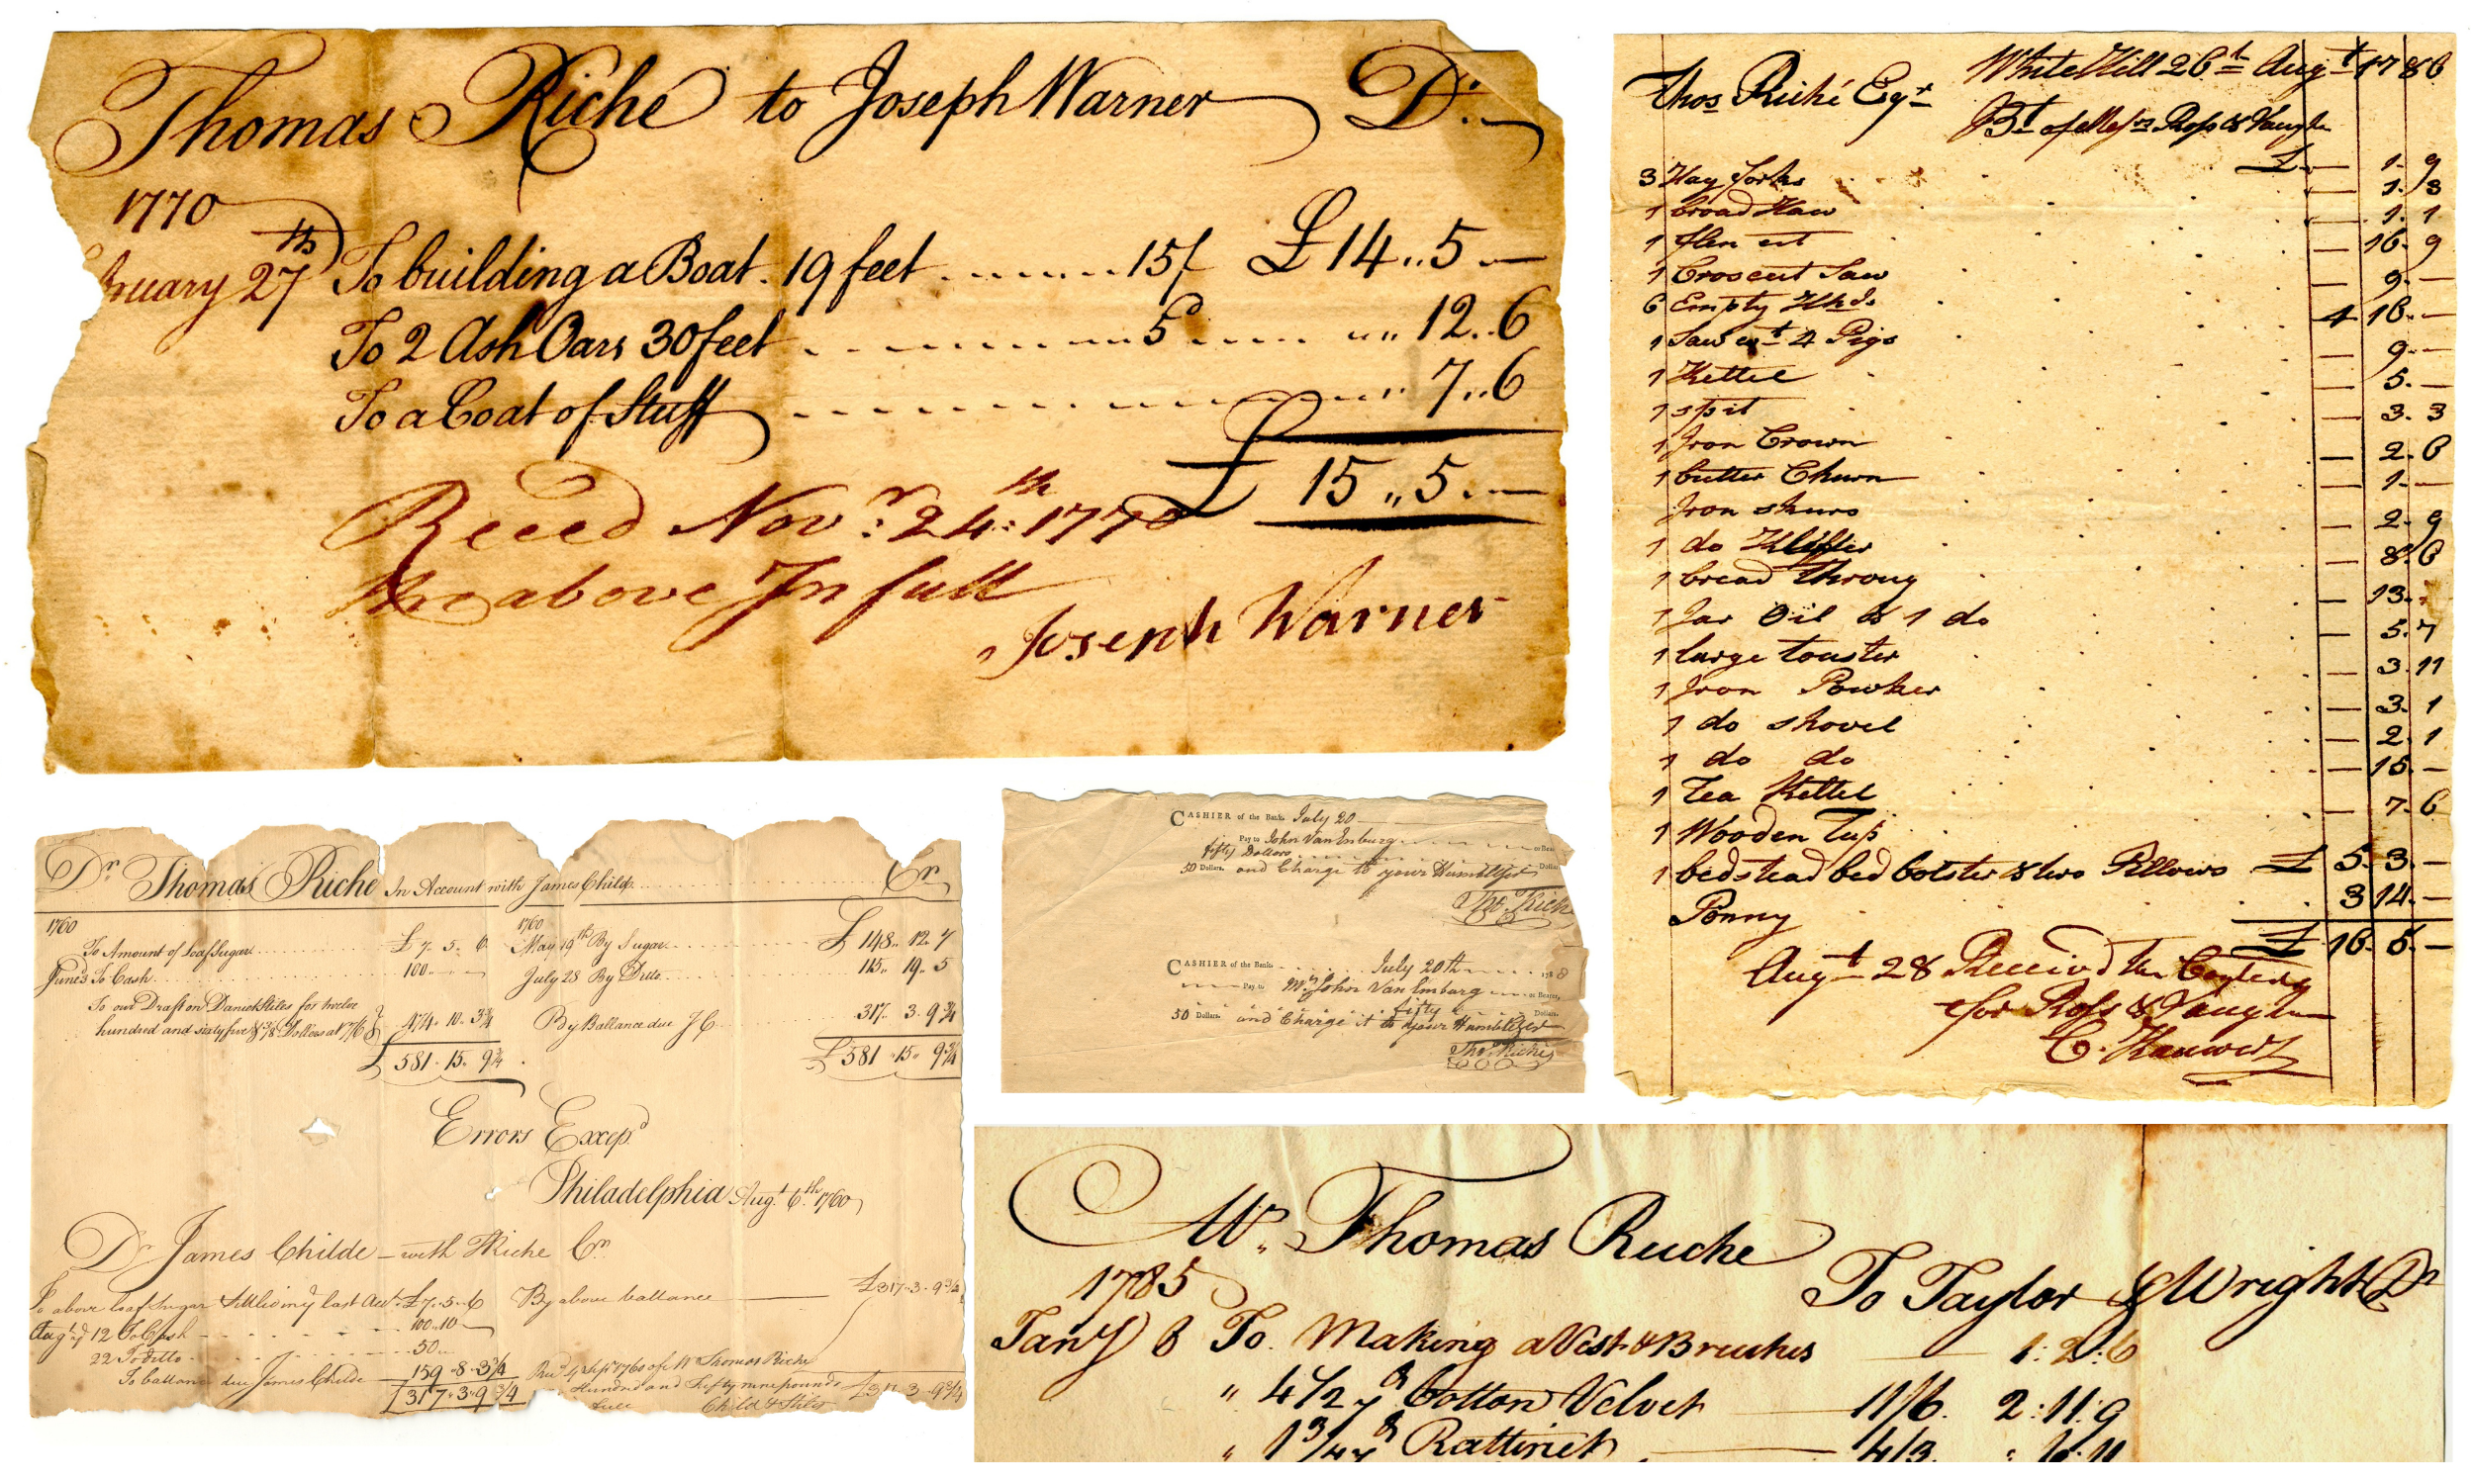 Thomas Riche to Joseph Warner Dr.
1770
ruary 27th To building a Boat. 19 feet 15/ £14..5.—
To 2 Ash Oars 30 feet 5d 12..6
To a Coat of Stuff 7..6
£ 15..5.—
Receed Novr. 24th 1770
the above In full
Joseph Warner
White Hill 26th Augt 1786
Thos Riché Esqr
Bt of Messrs Ross & Vaughn
3 Hay forks £ — 1. 9
1 broad Haw — 1. 3
1 flen est — 1. 1
1 Croscut Saw — 16. 9
6 Empty Hhds — 9. —
1 Saw wt 4 Pigs 4 16. —
1 Kettel — 9. —
1 spit — 5. —
1 Iron Crown — 3. 3
1 butter Churn — 2. 6
Iron skurs — 1. —
1 do — 2. 9
1 bread Throug — 8. 6
1 Jar Oil & 1 do — 13.
1 large touster — 5. 7
1 Iron Powker — 3. 11
1 do shovel — 3. 1
1 do do — 2. 1
1 Tea Kettel — 15. —
1 Wooden Tup — 7. 6
1 bedstead bed bolster & two Pillows £ 5. 3. —
Ponny 3 14. —
£ 16. 5. —
Augt 28 Received the
for Ross & Vaughn
Dr Thomas Riche In Account with James Childe Cr
1760
To Amount of Loaf Sugar £ 7. 5. 6
June 3 To Cash 100. — —
To our Draft on Daniel Stiles for twelve
hundred and sixty five & 3/8 Dollars at 7/6 474. 10. 3 3/4
£ 581. 15. 9 3/4
1760
May 19th By Sugar £ 148. 12. 7
July 28 By Ditto 115. 19. 5
By Ballance due J C 317. 3. 9 3/4
£ 581. 15. 9 3/4
Errors Excepd
Philadelphia Augt. 6th 1760
Dr James Childe — with TRiche Cr
To above loaf sugar settled in my last Acct. £7. 5. 6 By above ballance £317. 3. 9 3/4
Augt 12 To Cash 100. 10
22 To ditto 50
To ballance due James Childe 159. 8. 3 3/4
£317. 3. 9 3/4
Recd 4 Sept 1760 of Mr Thomas Riche
Hundred and fifty nine pounds £317. 3. 9 3/4
full Child & Stiles
CASHIER of the Bank July 20
Pay to John Van Emburg or Bear
fifty Dollars
50 Dollars. and Charge to your Humble Ser Dollar
Tho Riche
CASHIER of the Bank July 20th 1788
Pay to Mr John Van Emburg or Bearer,
fifty Dollars
50 Dollars. and Charge it to your Humble Ser
Tho Riche
Mr. Thomas Ruche
To Taylor & Wright Dr
1785
Jany 6 To Making a Vest & Bruches 1: 2: 6
" 4 1/2 yd Cotton Velvet 11/6. 2: 11: 9
" 1 3/4 yd Rattinet 4/3